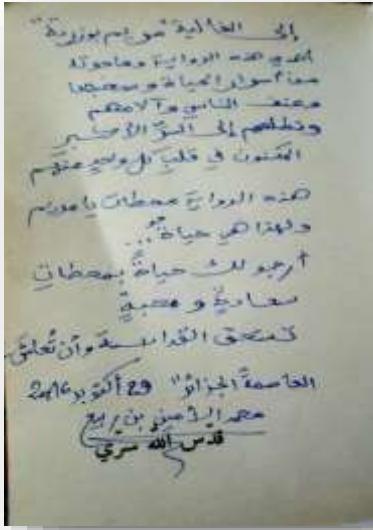 إلى الغالية "مريم بوزرية"
أهدي هذه الرواية وما حوته
من أسرار الحياة وسحرها
وعنف الناس وآلامهم
وتطلعهم إلى السرّ الأخير
المكنون في قلب كل واحد منهم
هذه الرواية محطات يا مريم
ولهذا هي حياة...
أرجو لك حياةً بمحطاتِ
سعادةٍ و محبةٍ
تستحق القداسة وأن تُعاش.
العاصمة الجزائر" 29 أكتوبر 2016
محمد الأمين بن ربيع
قدّس الله سرّي